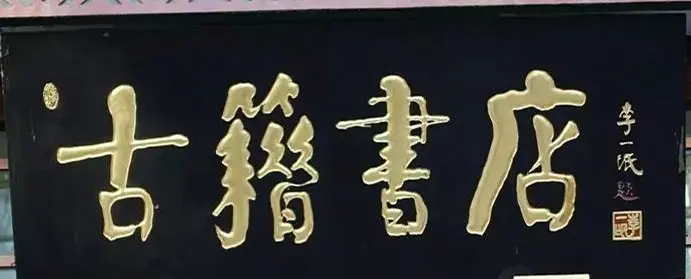 古籍書店
李一氓題